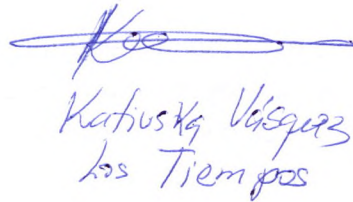 Katiuska Vásquez
Los Tiempos